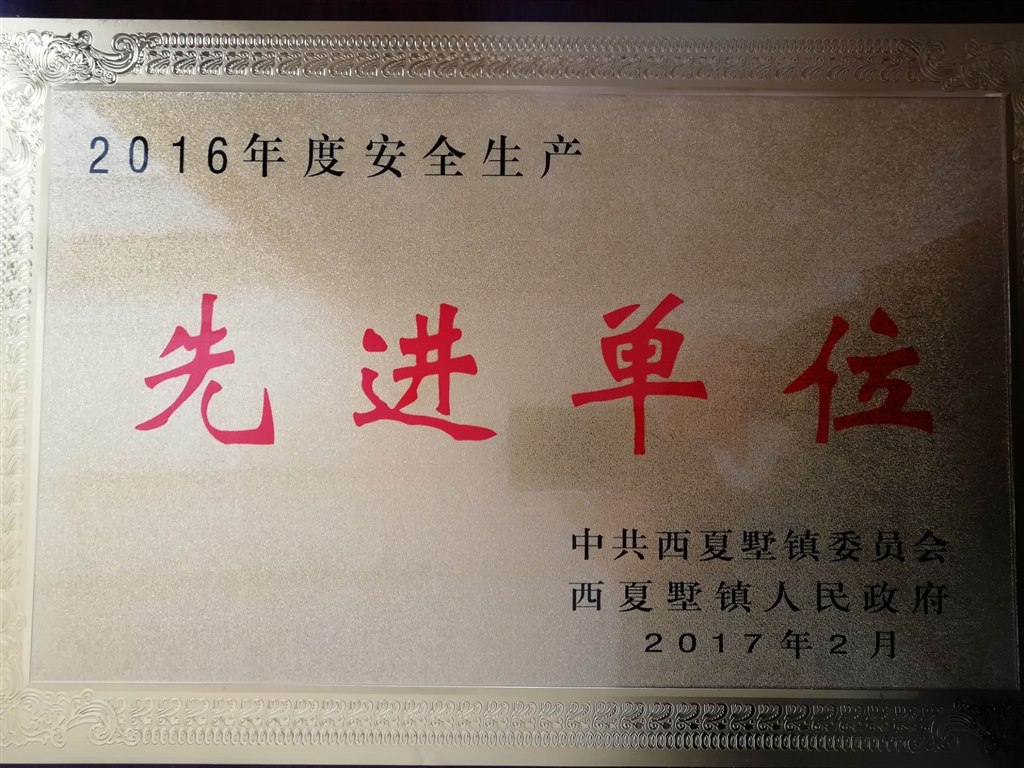 2016年度安全生产
先进单位
中共西夏墅镇委员会
西夏墅镇人民政府
2017年2月